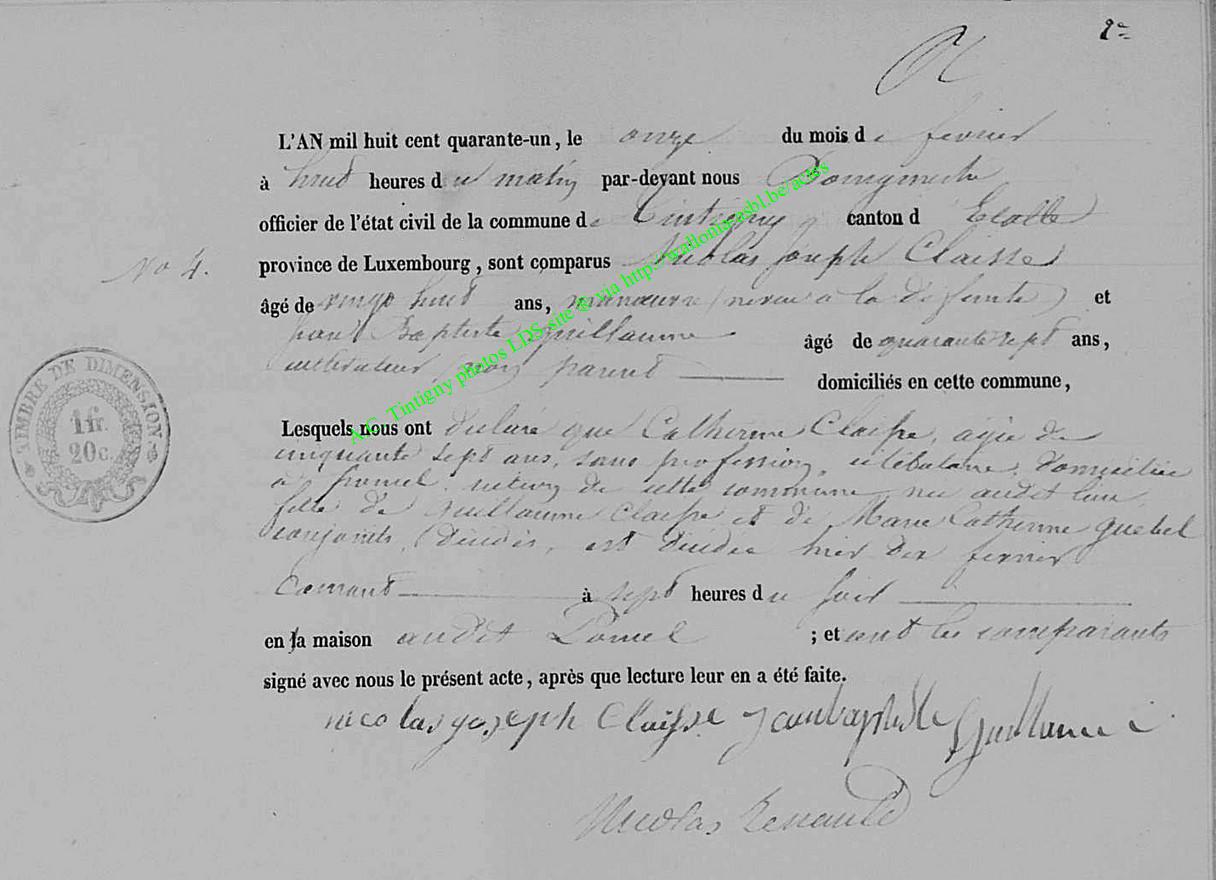 2e
L'AN mil huit cent quarante-un, le onze du mois de fevrier
à huit heures du matin par-devant nous Bourgmestre
officier de l'état civil de la commune de Tintigny canton d'Etalle
No 4. province de Luxembourg, sont comparus Nicolas Joseph Claisse
âgé de vingt huit ans, manœuvre (neveu à la défunte) et
Jean Baptiste Guillaume âgé de quarante sept ans,
cultivateur, non parent domiciliés en cette commune,
TIMBRE DE DIMENSION
1 fr.
20 c.
Lesquels nous ont déclaré que Catherine Claisse, agée de
cinquante sept ans, sans profession, célibataire, domiciliée
à section de cette commune née audit lieu
fille de Guillaume Claisse et de Marie Catherine Guebel
conjoints, décédés, est décédée hier dix fevrier
Courant à sept heures du soir
en la maison audit ; et ont les comparants
signé avec nous le présent acte, après que lecture leur en a été faite.
nicolas joseph Claisse jean baptiste Guillaume
Nicolas Renauld
A.C. Tintigny photos LDS-site © via http://wallonia-asbl.be/actes